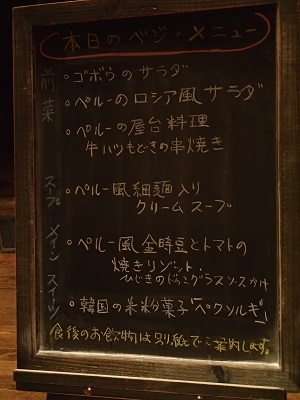 本日のベジ・メニュー
前菜
・ゴボウのサラダ
・ペルーのロシア風サラダ
・ペルーの屋台料理
牛ハツもどきの串焼き
スープ
・ペルー風細麺入り
クリームスープ
メイン
・ペルー風金時豆とトマトの
焼きリゾット
ひじきの グラスソースかけ
スイーツ
・韓国の米粉菓子「ペクソルギ」
食後のお飲物は別紙でご案内します。